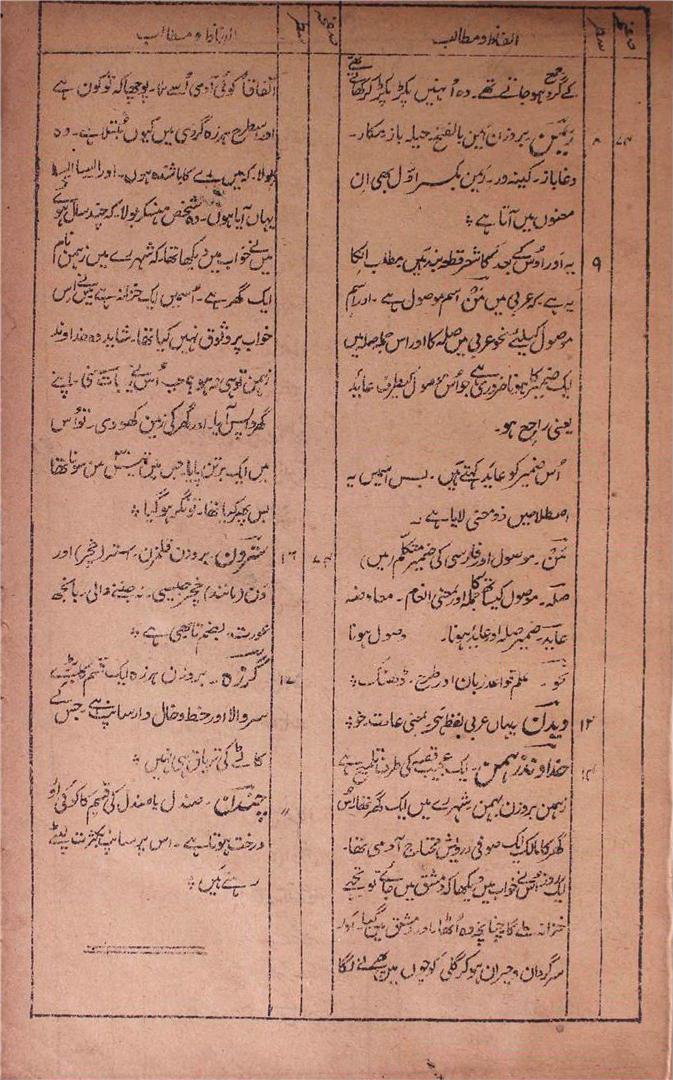 صفحہ سطر الفاظ و مطالب
کے گرد جمع ہو جاتے تھے۔ وہ اُنہیں پکڑ پکڑ کر کھاتے تھے
۷۳ ۸ ریمن۔ بروزن بالفتح حیلہ باز۔ مکار۔
دغا باز۔ کینہ ور۔ بکسر اوّل بھی ان
معنوں میں آتا ہے ؞
۹ یہ اور اوس کے بعد کا شعر قطعہ بند ہیں مطلب انکا
یہ ہے کہ عربی میں مَنْ اسم موصول ہے۔ اور اسم
موصول کیلئے نحو عربی میں صلہ کا اور اس جملہ صلہ میں
ایک ضمیر کا ہونا ضروری ہے جو اُس موصول کیطرف عاید
یعنی راجع ہو۔
اُس ضمیر کو عاید کہتے ہیں۔ بس اسمیں یہ
اصطلاحیں ذو معنی لایا ہے۔
مَن۔ موصول اور فارسی کی ضمیر متکلم (میں)
صلہ۔ موصول کا جملہ اور بمعنی انعام۔ معاوضہ
عاید۔ ضمیر صلہ اور عاید ہونا۔ وصول ہونا
نحو۔ علم قواعد زبان اور طرح۔ ڈھنگ ؞
۱۲ ویدن یہاں عربی لفظ ہے بمعنی عادت۔ خو ؞
خداوند رہمن۔ ایک عجیب قصہ کی طرف تلمیح ہے
زہمن بروزن بہمن شہر رے میں ایک گھر تھا اس
گھر کا مالک ایک صوفی درویش محتاج آدمی تھا۔
ایک روز اس نے خواب میں دیکھا کہ دمشق میں جائے تو تجھے
خزانہ ملے گا چنانچہ وہ اُٹھا اور دمشق میں گیا۔ اور
سرگردان و حیران ہو کر گلی کوچوں میں پھرنے لگا
صفحہ سطر الفاظ و مطالب
اتفاقاً کوئی آدمی اُسے ملا۔ پوچھا کہ تو کون ہے
اور اسطرح ہرزہ گردی میں کیوں مبتلا ہے۔ وہ
بولا۔ کہ میں رے کا باشندہ ہوں۔ اور ایسا ایسا
یہاں آیا ہوں۔ وہ شخص ہنسکر بولا۔ کہ چند سال ہوئے
میں نے خواب میں دیکھا تھا۔ کہ شہر رے میں زہمن نام
ایک گھر ہے۔ اُسمیں ایک خزانہ ہے میں نے اس
خواب پر وثوق نہیں کیا تھا۔ شاید وہ خداوند
زہمن تو ہی نہ ہو؟ جب اُس نے یہ بات سنی۔ اپنے
گھر واپس آیا۔ اور گھر کی زمین کھودی۔ تو اُس
میں ایک برتن پایا جس میں من سونا تھا
بس پھر کیا تھا۔ تونگر ہو گیا ؞
۷۳ ۱۶ سترون۔ بروزن قلمزن۔ ستر (خچر) اور
ون (مانند) خچر جیسی۔ نہ جننے والی۔ بانجھ
عورت۔ بضم تا بھی ہے ؞
۱۷ گرزہ۔ بروزن ہرزہ ایک قسم کا بڑے
سر والا اور خط و خال دار سانپ ہے۔ جس کے
کاٹے کی تریاق ہی نہیں ؞
〃 چندان۔ صندل یا صندل کی قسم کا کوئی اور
درخت ہوتا ہے۔ اس پر سانپ بکثرت لپٹے
رہتے ہیں ؞